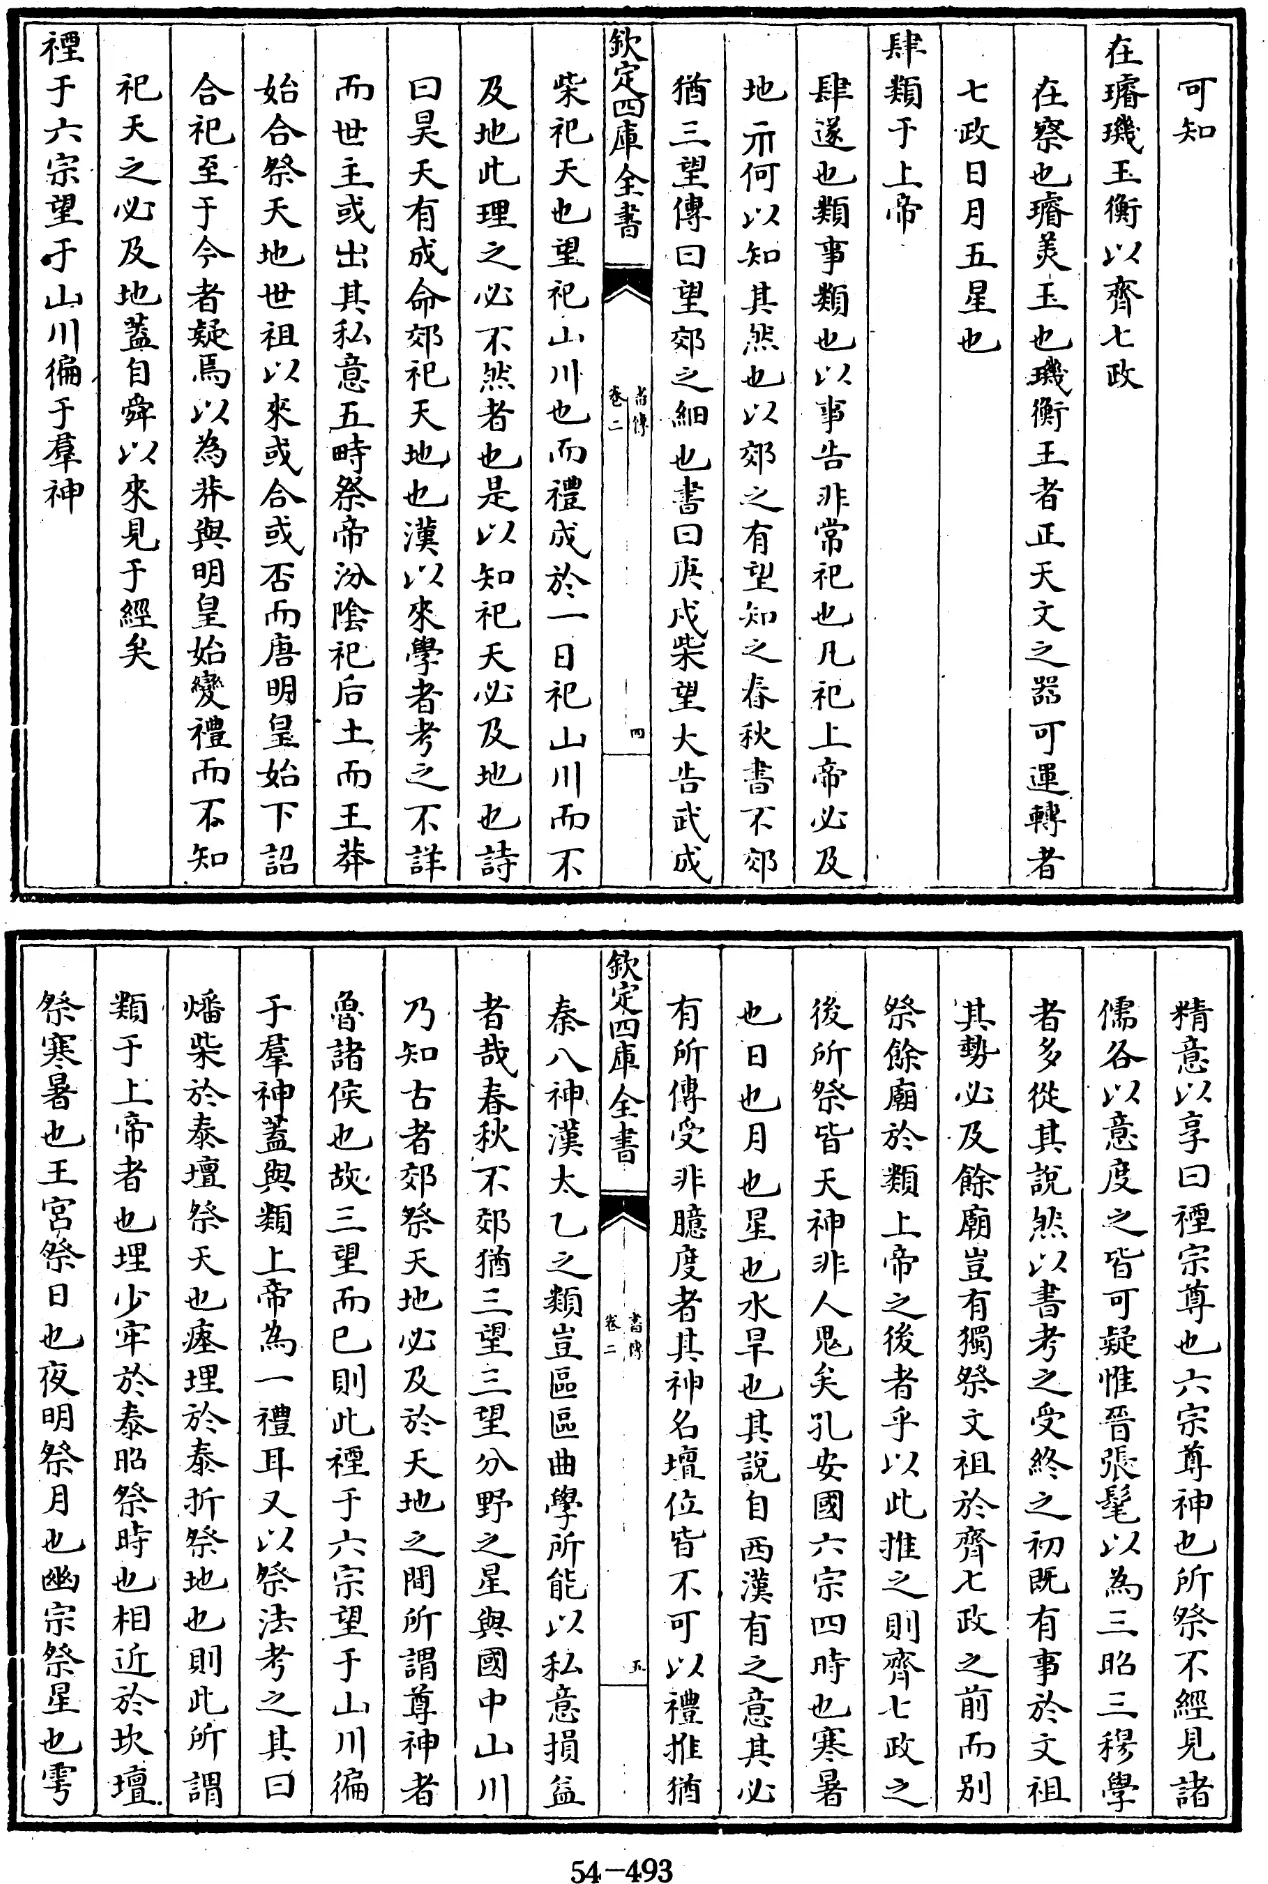 可知
在璿璣玉衡以齊七政
在察也璿美玉也璣衡王者正天文之器可運轉者
七政日月五星也
肆類于上帝
肆遂也類事類也以事告非常祀也凡祀上帝必及
地示何以知其然也以郊之有望知之春秋書不郊
猶三望傳曰望郊之細也書曰庚戌柴望大告武成
欽定四庫全書
書傳
卷二
四
柴祀天也望祀山川也而禮成於一日祀山川而不
及地此理之必不然者也是以知祀天必及地也詩
曰昊天有成命郊祀天地也漢以來學者考之不詳
而世主或出其私意五畤祭帝汾陰祀后土而王莽
始合祭天地世祖以來或合或否而唐明皇始下詔
合祀至于今者疑焉以為莽與明皇始變禮而不知
祀天之必及地蓋自舜以來見于經矣
禋于六宗望于山川徧于羣神
精意以享曰禋宗尊也六宗尊神也所祭不經見諸
儒各以意度之皆可疑惟晉張髦以為三昭三穆學
者多從其說然以書考之受終之初既有事於文祖
其勢必及餘廟豈有獨祭文祖於齊七政之前而别
祭餘廟於類上帝之後者乎以此推之則齊七政之
後所祭皆天神非人鬼矣孔安國六宗四時也寒暑
也日也月也星也水旱也其說自西漢有之意其必
有所傳受非臆度者其神名壇位皆不可以禮推猶
欽定四庫全書
書傳
卷二
五
秦八神漢太乙之類豈區區曲學所能以私意損益
者哉春秋不郊猶三望三望分野之星與國中山川
乃知古者郊祭天地必及於天地之間所謂尊神者
魯諸侯也故三望而已則此禋于六宗望于山川徧
于羣神蓋與類上帝為一禮耳又以祭法考之其曰
燔柴於泰壇祭天也瘞埋於泰折祭地也則此所謂
類于上帝者也埋少牢於泰昭祭時也相近於坎壇
祭寒暑也王宮祭日也夜明祭月也幽宗祭星也雩
54-493